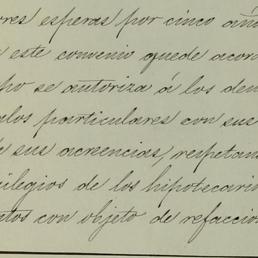 ores esperas por cinco año
este convenio quede acor
po se autoriza á los deu
los particulares con sus
e sus acreencias, respetan
ilegios de los hipotecario
tos con objeto de refaccio